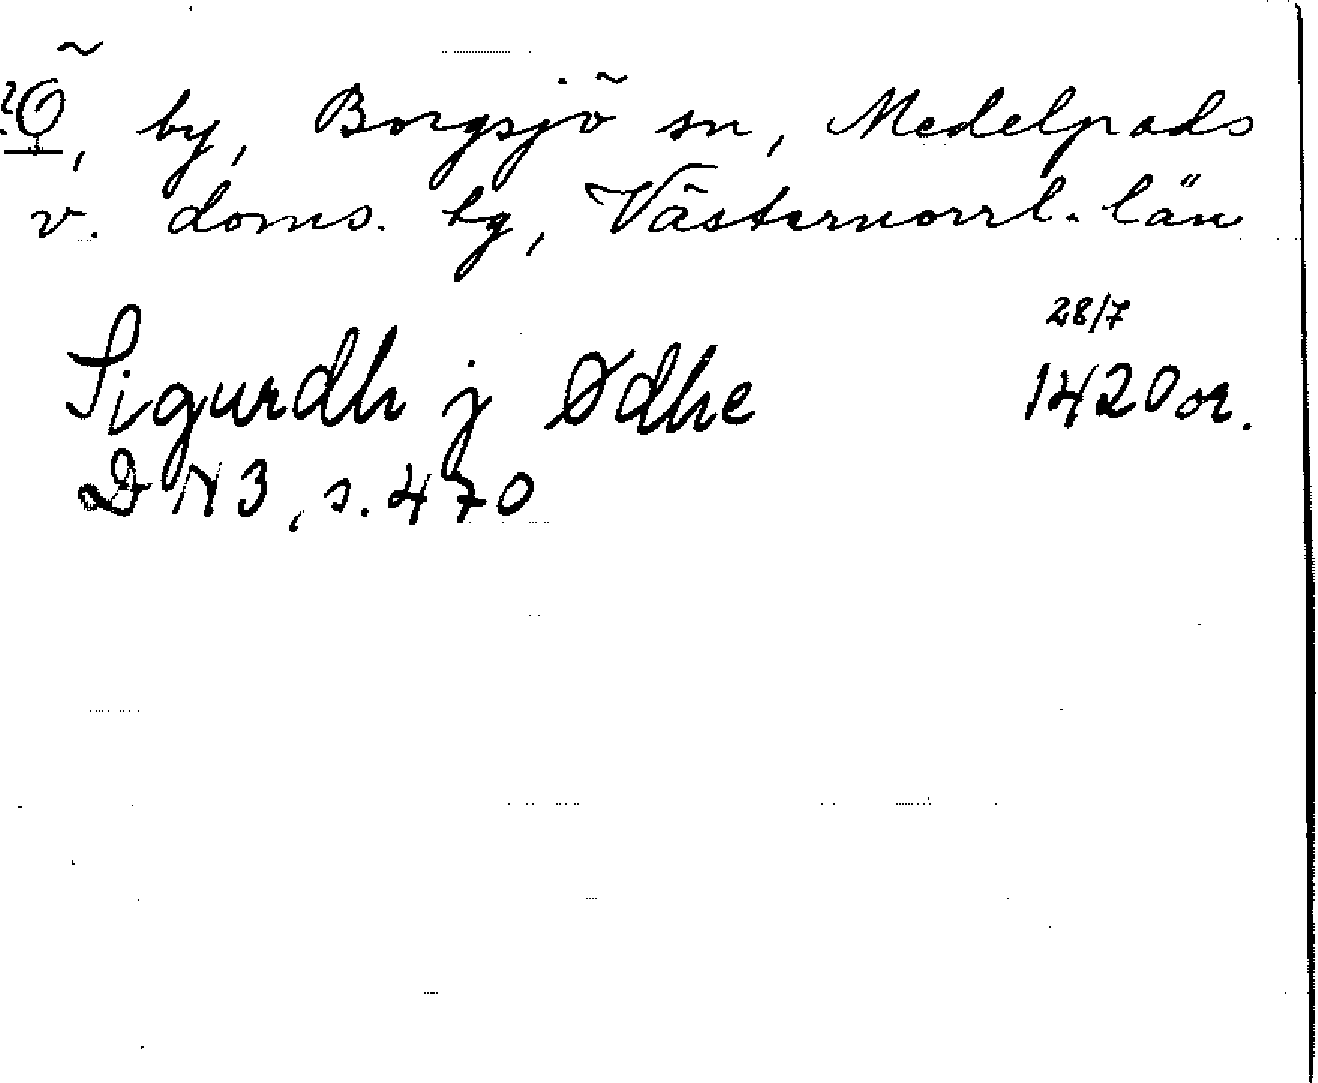 ?Ö, by, Borgsjö sn, Medelpads
v. doms. hg, Västernorrl. län
28/7
Sigurdh j Ødhe 1420 or.
DN 3, s. 470